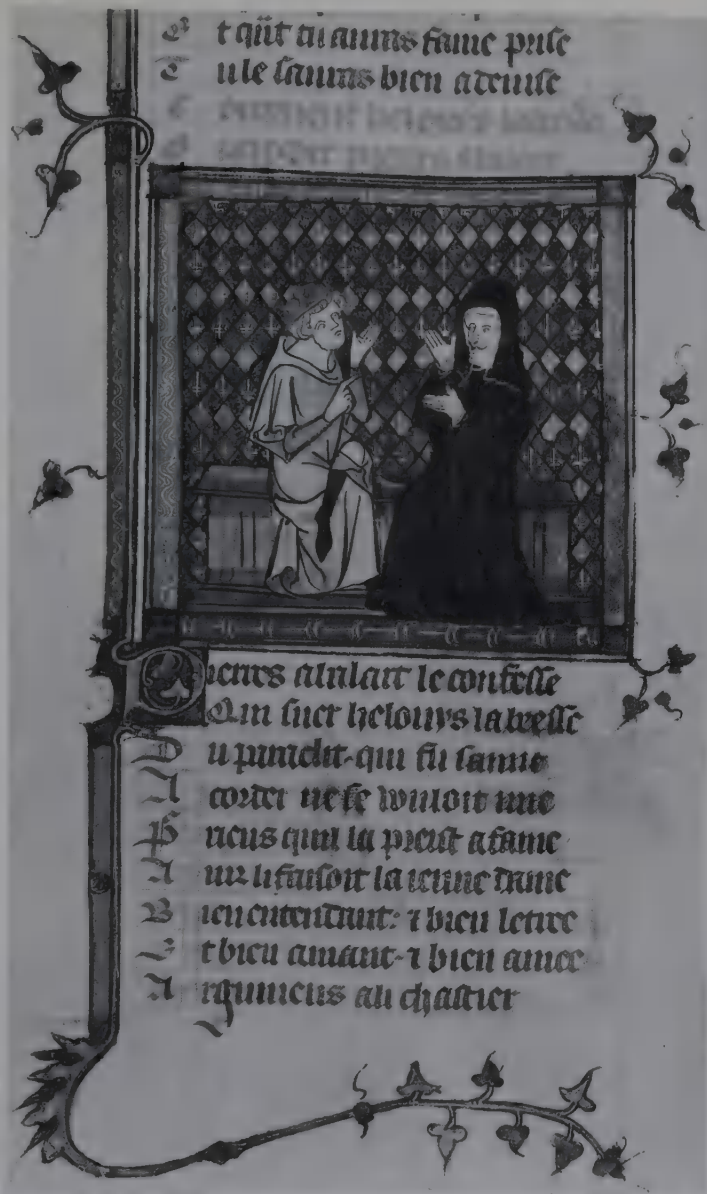 E t qñt tu auras fame prise
T u le sauras bien a deuise
C oument helouys labeesse
Pierres abalart le confesse
Qui suer helouys labeesse
D u paraclit · qui fu samie
A corder ne se wuloit mie
P our riens quil la preist a fame
A inz li faisoit la ieune dame
B ien entendant · ⁊ bien letree
E t bien amant · ⁊ bien amee
A rgumens a li chastier